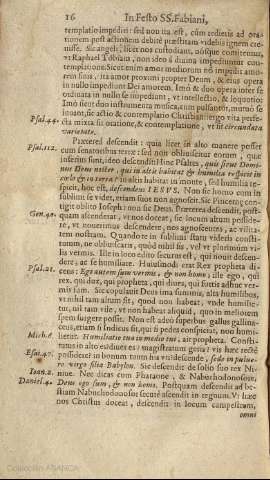 16 In Festo SS. Fabiani,
templatio impediri: sed non ita est, cùm redieris ad ora-
tionem post actionem debitè præstitam videbis ignem cre-
uisse. Sic angeli, licet nos custodiant, nósque comitentur,
vt Raphael Tobiam, non ideo à diuina impediuntur con-
templatione. Sicut enim amor mediorum nō impedit amo-
rem finis, ita amor proximi propter Deum, & eius opera
in nullo impediunt Dei amorem. Imò & duo opera inter se
ordinata in nullo se impediunt, vt intellectio, & loquutio:
Imò sicut duo instrumenta musica, cum pulsantur, mutuò se
iouant, sic actio & contemplatio Christiani: ergo vita perfe-
Psal. 44. cta mixta sit oratione, & contemplatione, vt sit circundata
varietate.
Præterea descendit: quia licet in alto manere posset
Psal. 112. cum senatoribus terræ: sed non obliuiscitur eorum, qui
inferius sunt, ideo descendit. Hinc Psaltes, quis sicut Domi-
nus Deus noster, qui in altis habitat & humilia respicit in
cœlo & in terra? in altis habitat in monte, sed humilia re-
spicit, hoc est, descendens IESVS. Non sic homo cum in
sublimi se videt, etiam suos non agnoscit. Sic Pincernę con-
tigit oblito Ioseph: non sic Deus. Præterea descendit, post-
Gen. 40. quam ascenderat, vt nos doceat, sic locum altum posside-
re, vt nouerimus descendere, non agnoscentes, ac vilita-
tem nostram. Quando te in sublimi statu videris consti-
tutum, ne obliuiscaris, quòd nihil sis, vel vt plurimùm vi-
lis vermis. Ille in loco edito securus est, qui nouit descen-
Psal. 21. dere, ac se humiliare. Huiusmodi erat Rex propheta di-
cens: Ego autem sum vermis, & non homo, ille ego, qui
rex, qui dux, qui propheta, qui diues, qui fortis adhuc ver-
mis sum. Sic copulauit Deus ima summis, alta humilibus,
vt nihil tam altum sit, quod non habeat, vnde humilie-
tur, nil tam vile, vt non habeat aliquid, quo in meliorem
spem surgere posset. Non est adeò superbus gallus gallina-
ceus, etiam si Indicus sit, qui si pedes conspiciat, non humi-
Mich. 6. lietur. Humiliatio tua in medio tui, ait propheta. Consti-
tutus in alto es? diues es? magistratum geris? vis hæc rectè
Esai. 47. possidere? in bonum tuum hia vti? descende, sede in pulue-
re virgo filia Babylon. Sic descendit de solio suo rex Ni-
Ioan. 2. niuæ. Nec dicas cum Pharaone, & Nabuchodonosore,
Daniel. 4. Deus ego sum, & non homo. Postquam descendit ad be-
stiam Nabuchodonosor securè ascendit in regnum. Vt hæc
nos Christus doceat, descendit in locum campestrem,
omni